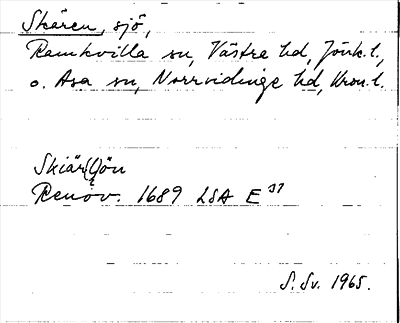 Skären, sjö,
Ramkvilla sn, Västra hd, Jönk.l.,
o. Asa sn, Norrvidinge hd, Kron.l.
Skiär(s)jön
Renov. 1689 LSA E 37
S. Sv. 1965.